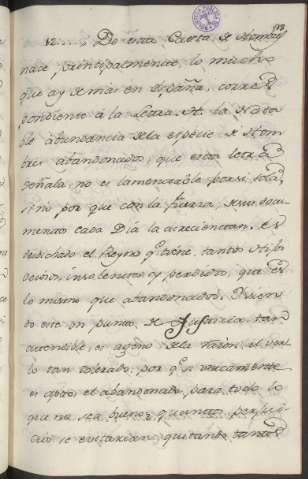 12.... De esta Carta de
nace principalmente, lo mucho
que ay de mas en España, corres
pondiente à la Letra A. la Nota
ble abundancia de la especie de Hom
bres abandonados, que esta letra
señala, no es lamentable por si sola,
sino por que con la fuerza, de su
cada Dia la acrecientan. Es
desdichado el Reyno q.e tiene tantos
ociosos, insolentes y perdidos, que es
lo mismo que abandonados. Y sien
do este un punto de Justicia tan
atendible, es ageno de la razon el ver
lo tan tolerado, por q.e si unicamente
es apto el abandonado para todo lo
que no sea bueno, quantos perjui
cios se evitarian quitando tantos